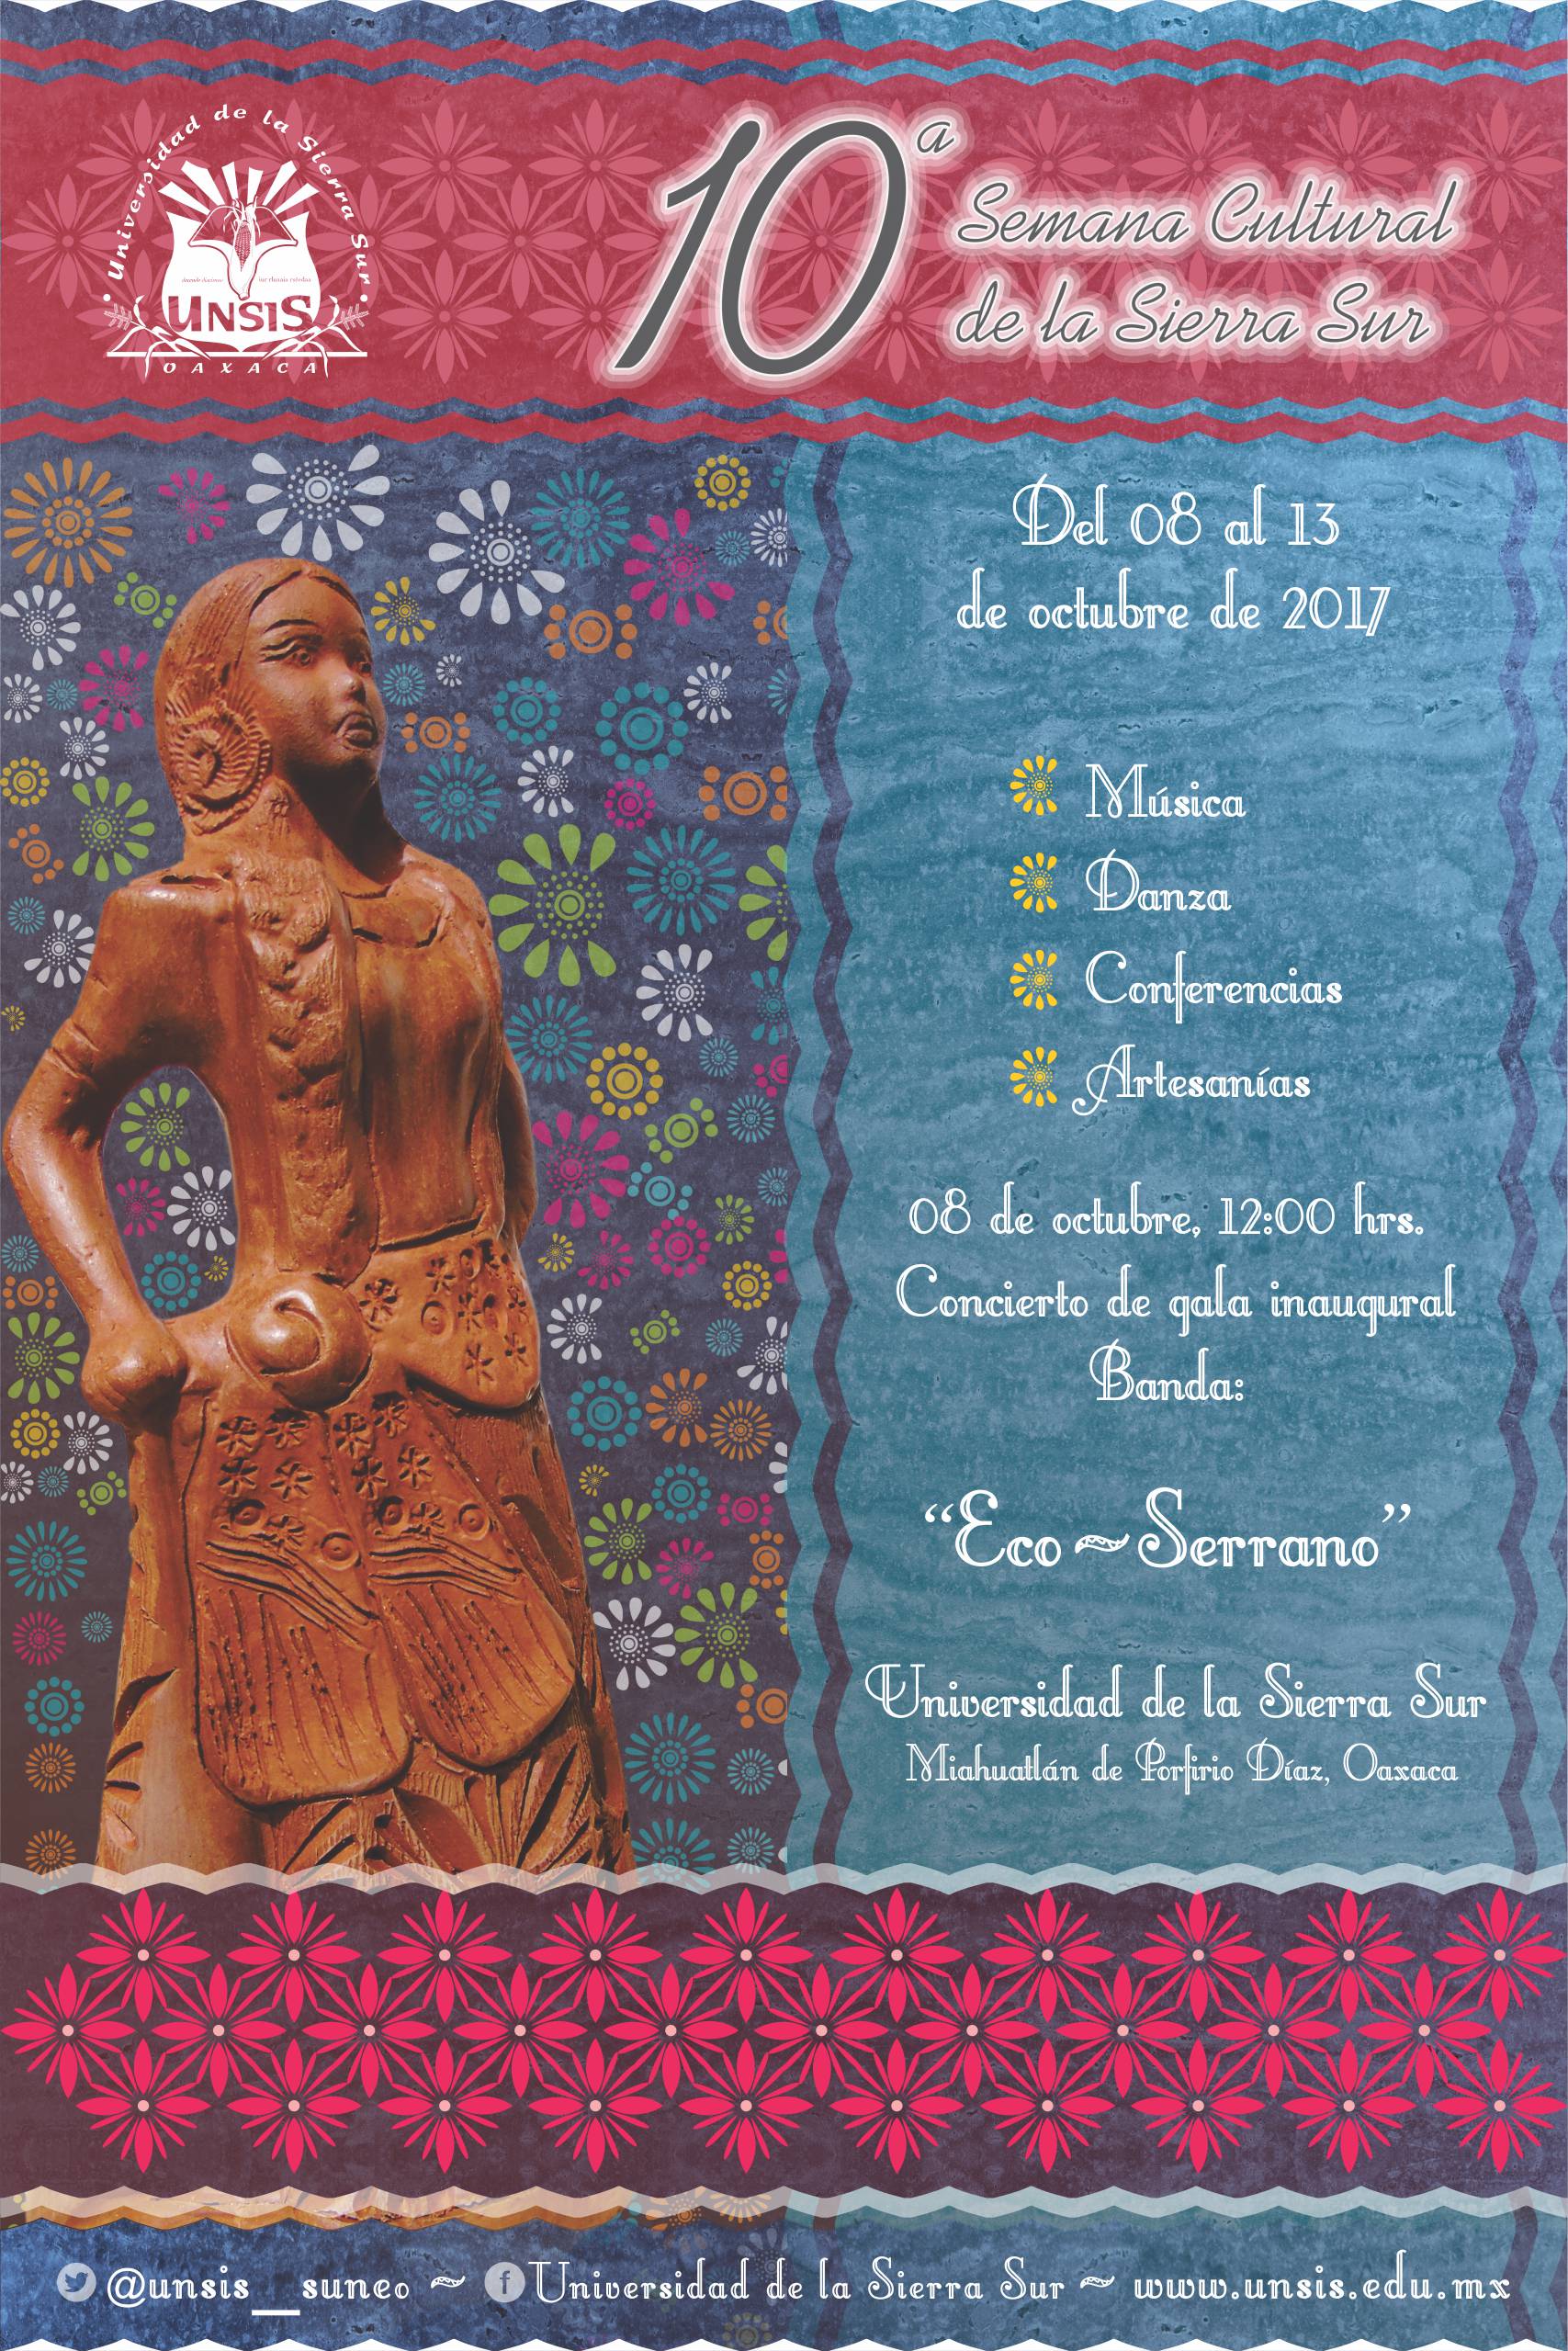 Universidad de la Sierra Sur
UNSIS
OAXACA
10a
Semana Cultural
de la Sierra Sur
Del 08 al 13
de octubre de 2017
Música
Danza
Conferencias
Artesanías
08 de octubre, 12:00 hrs.
Concierto de gala inaugural
Banda:
“Eco~Serrano”
Universidad de la Sierra Sur
Miahuatlán de Porfirio Díaz, Oaxaca
@unsis_suneo ~ Universidad de la Sierra Sur ~ www.unsis.edu.mx